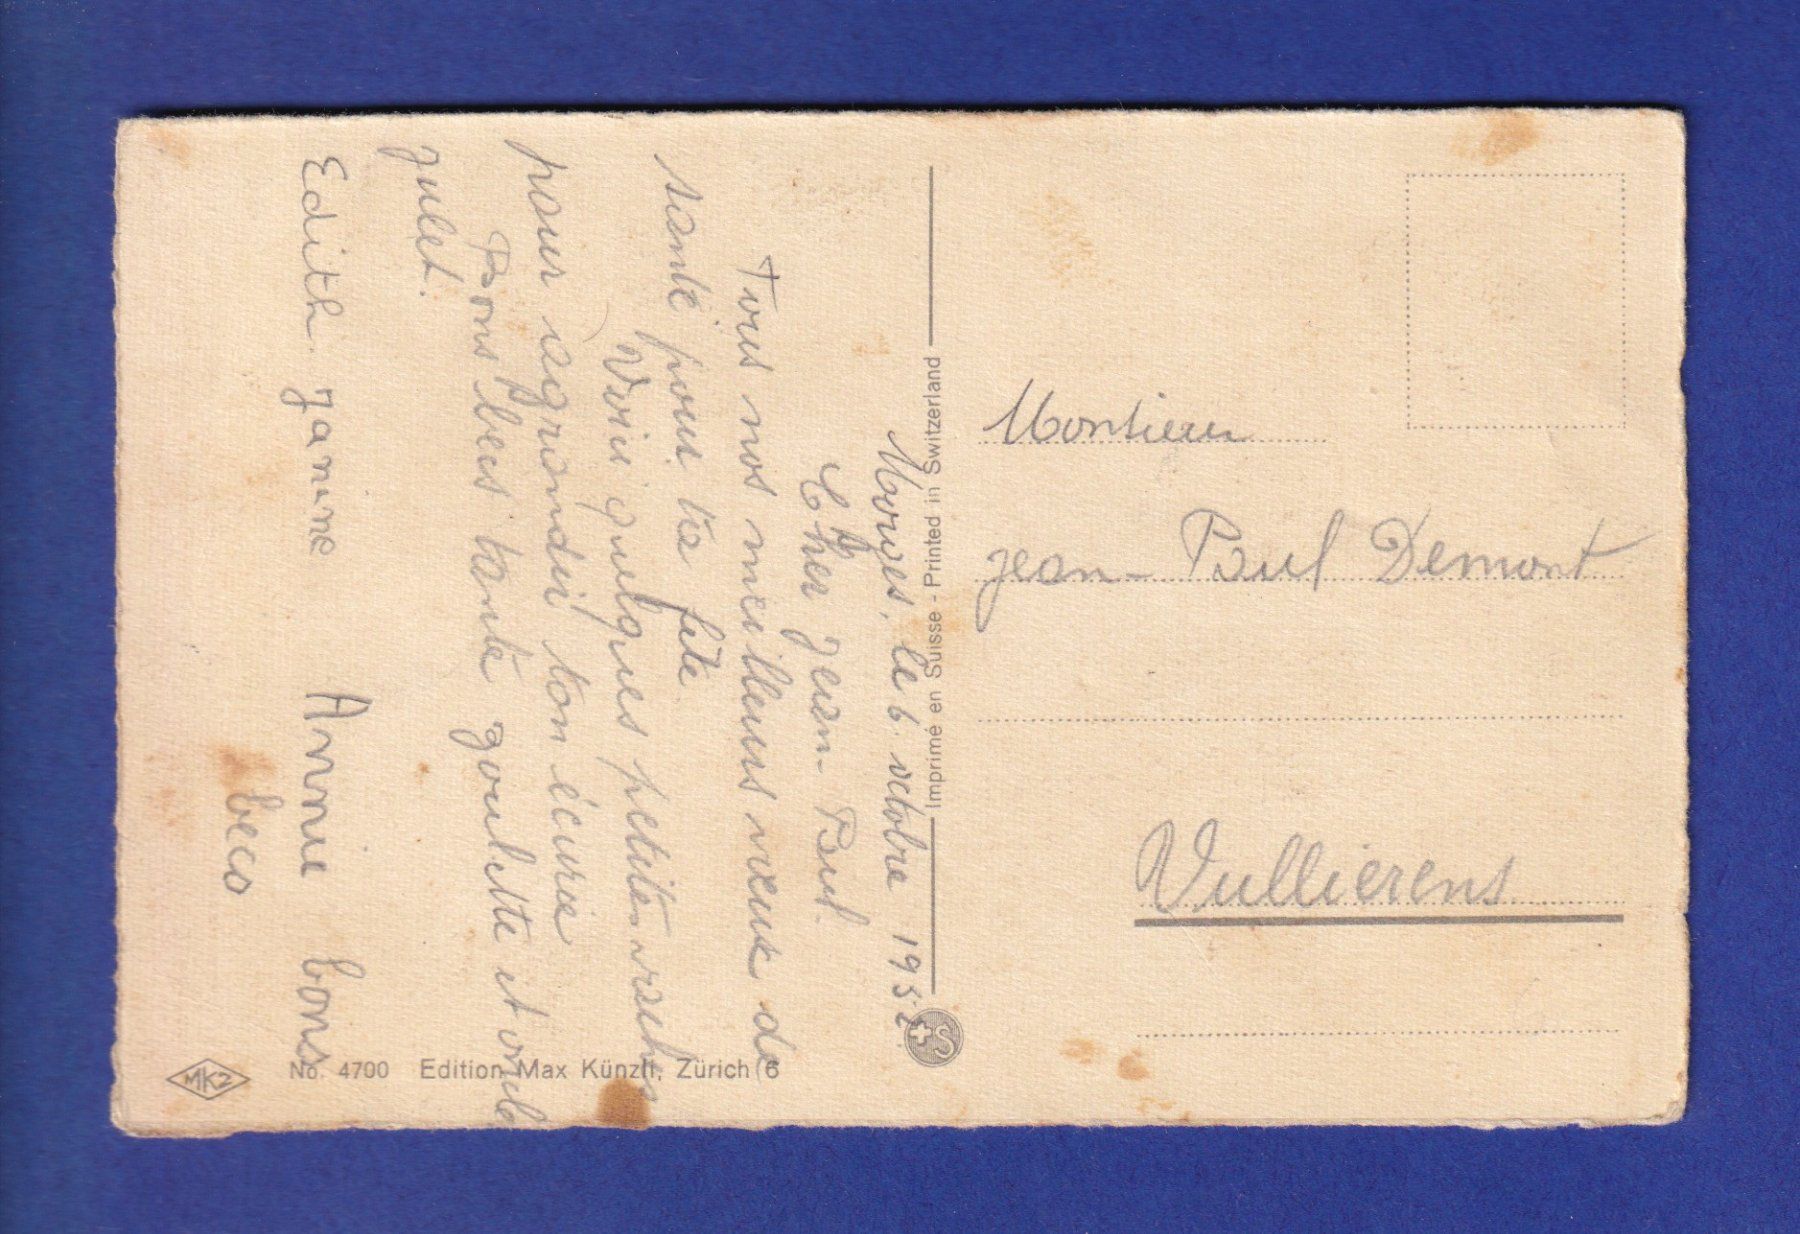 Morges, le 6 octobre 1952.
Cher Jean-Paul.
Tous nos meilleurs vœux de
santé pour ta fête.
Voici quelques petites vaches
pour agrandir ton écurie
Bons becs tante goulette et oncle
julet.
Edith. Janine Annie bons
beco
Imprimé en Suisse - Printed in Switzerland
+S
Montieur
Jean-Paul Demont
Vullierens
MK2
No. 4700 Edition Max Künzli, Zürich 6